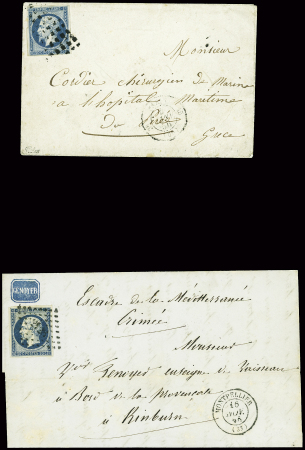 Monsieur
Cordier chirurgien de Marine
a l'hopital Maritime
Du Pirée
Grece
GENOYER
Escadre de la Mediterranée
Crimée
Monsieur
Genoyer enseigne de Vaisseau
à Bord de la provençale
à Kinburn
MONTPELLIER
18
NOV.
(33)